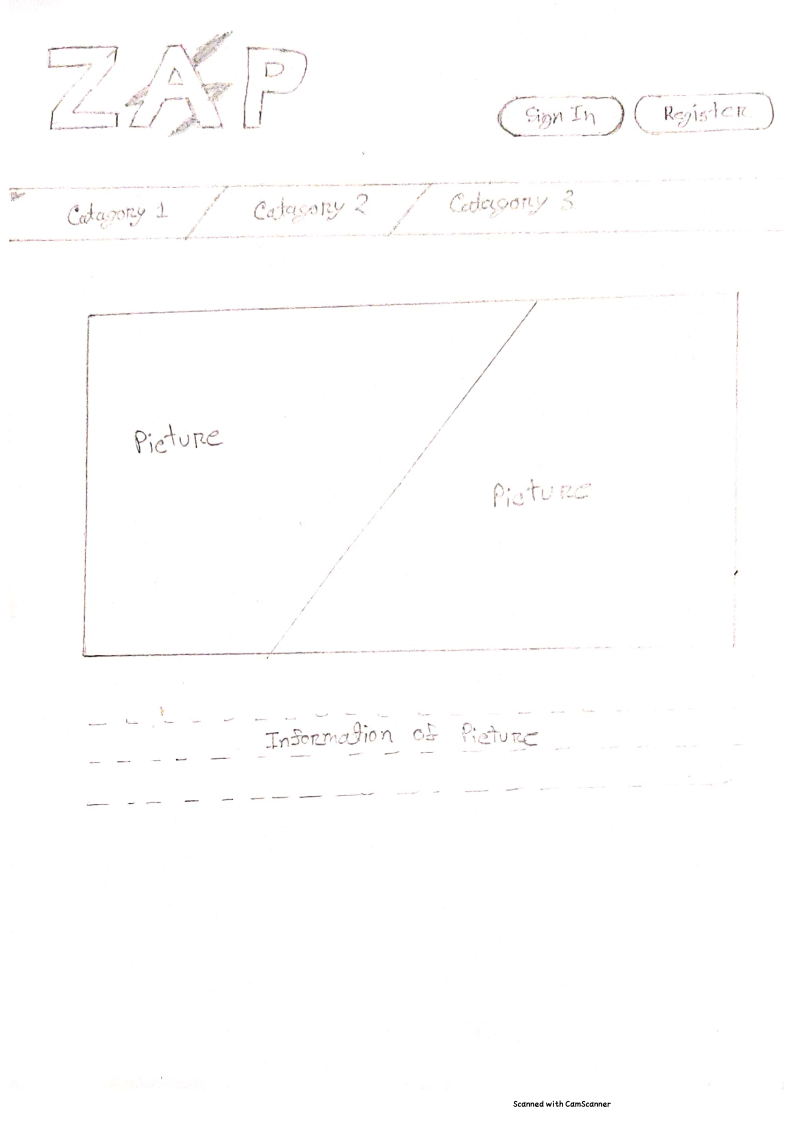 ZAP
Sign In
Register
Catagory 1
Catagory 2
Catagory 3
Picture
Picture
Information of Picture
Scanned with CamScanner